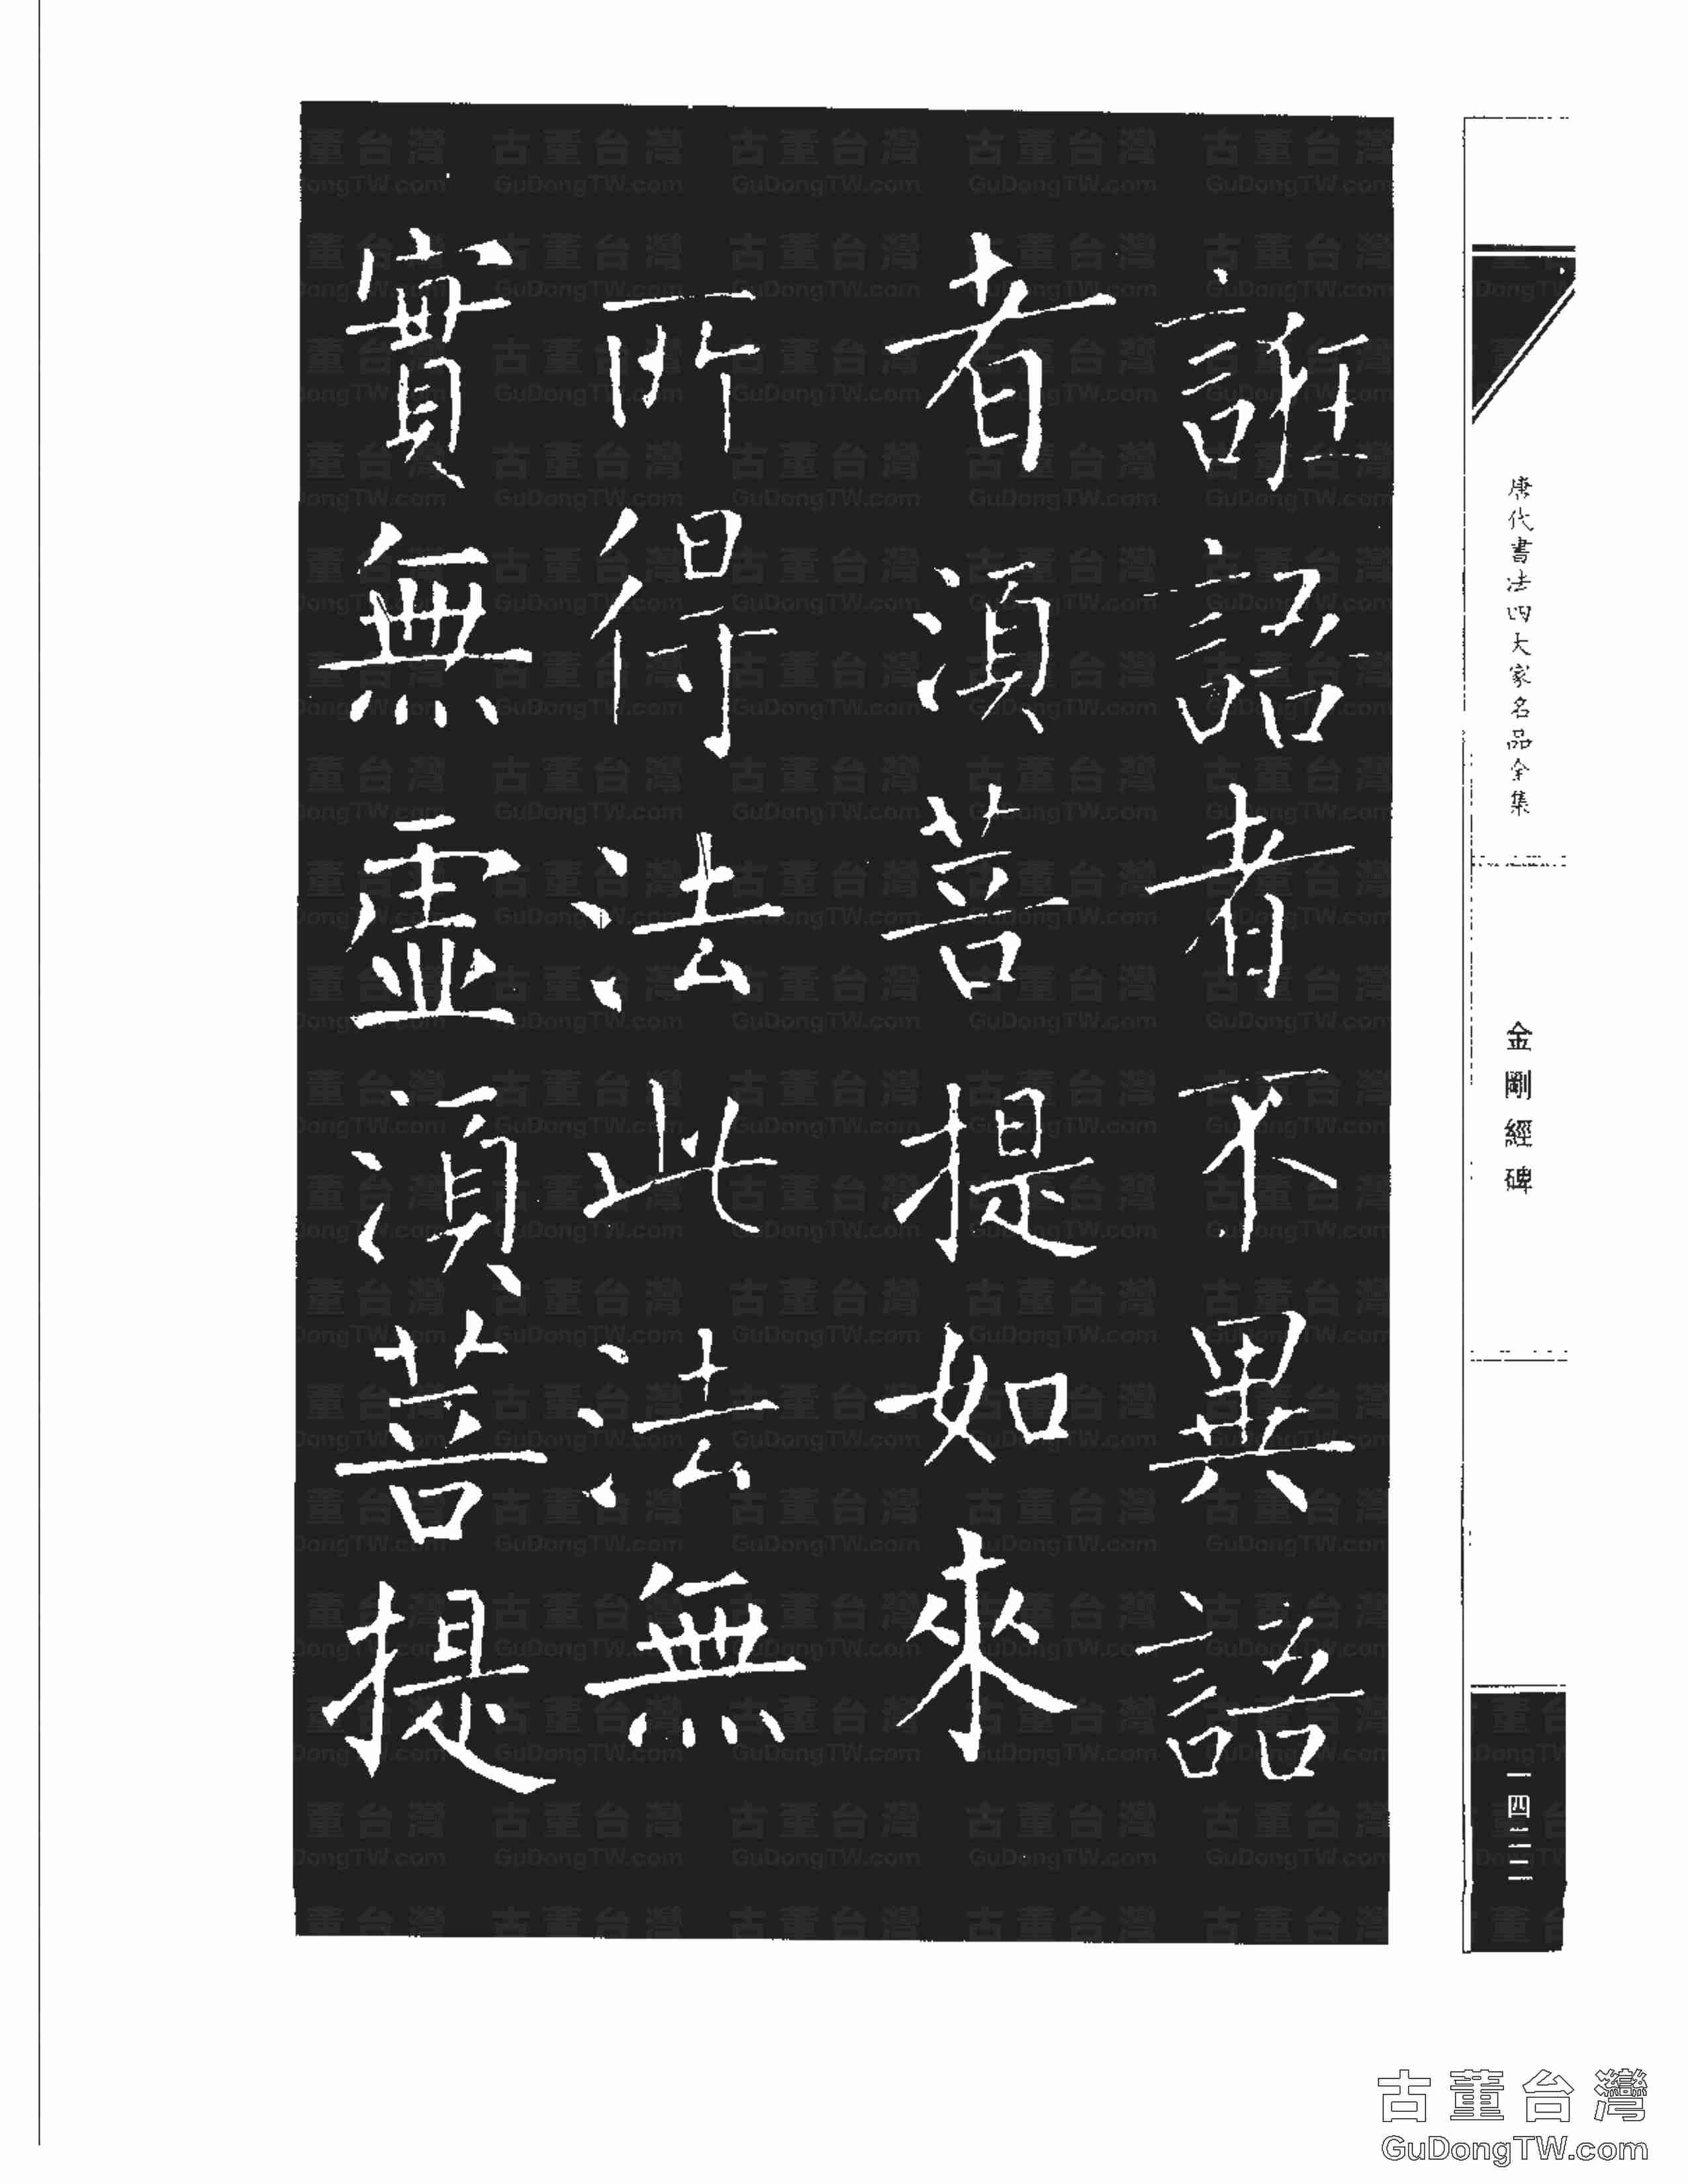 誑語者不異語
者湏菩提如來
所得法此法無
實無虛湏菩提
唐代書法四大家名品全集
金剛經碑
一四二二
古董台灣
GuDongTW.com